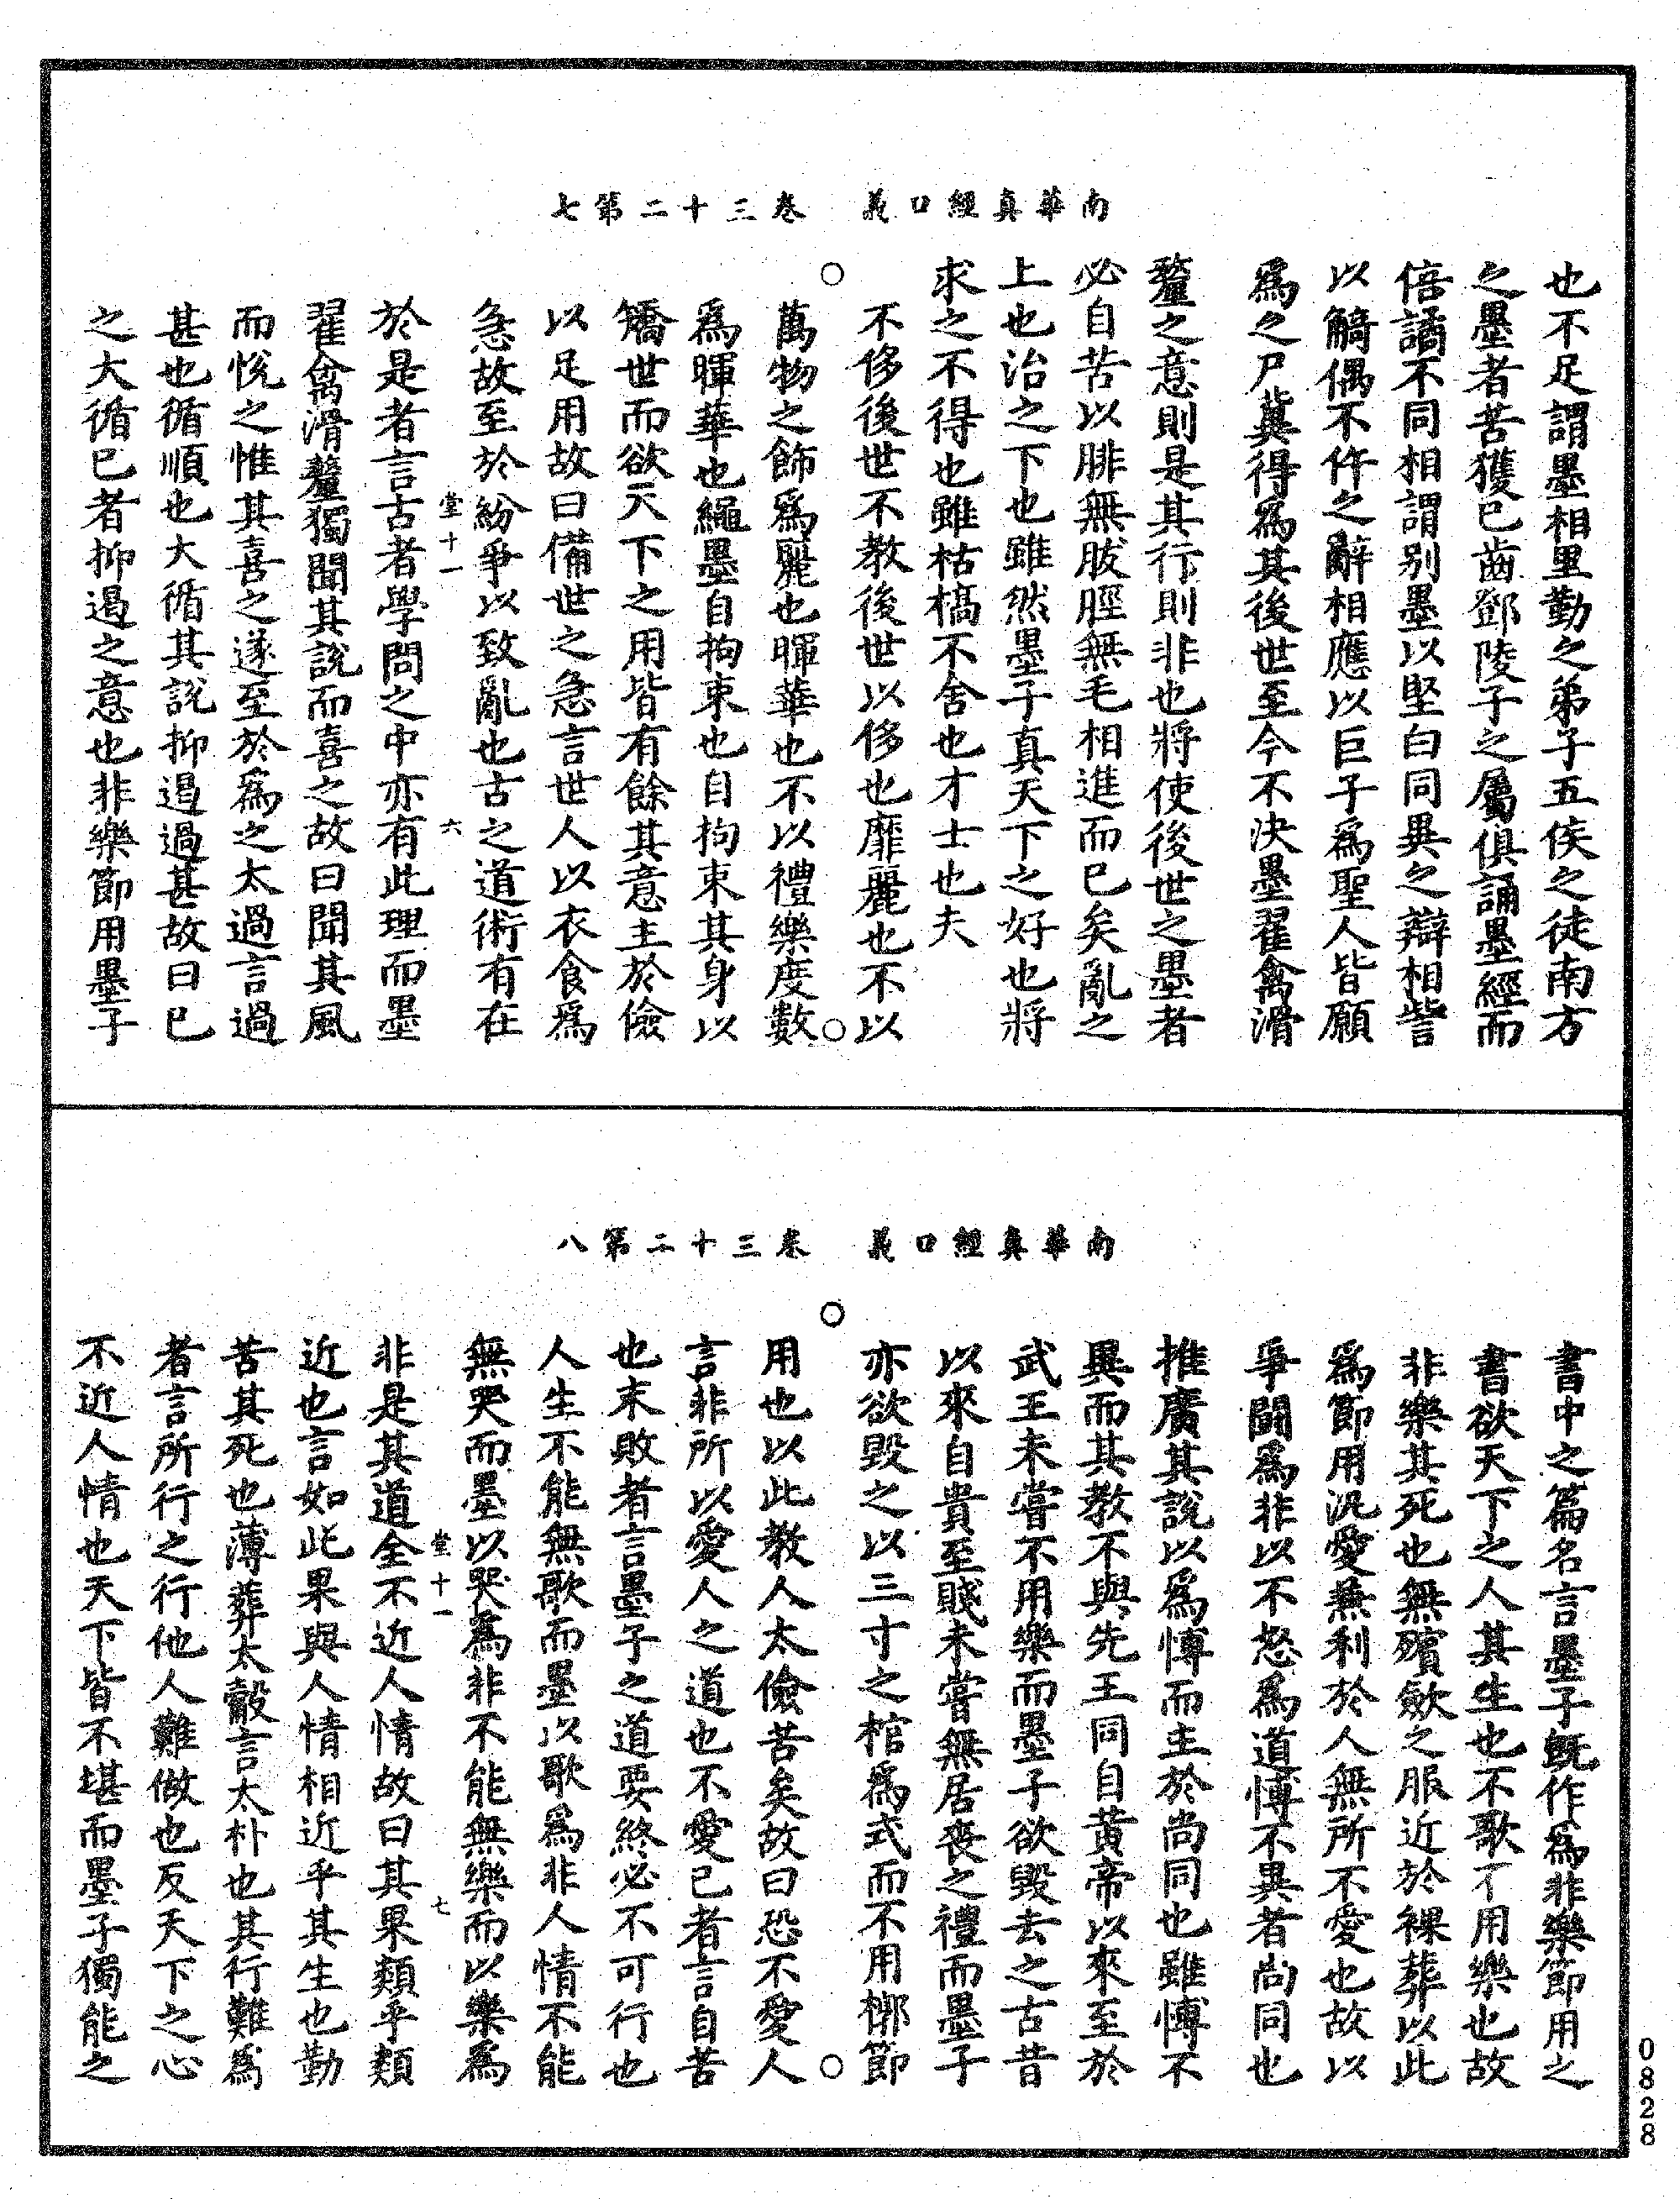 南華真經口義　卷三十二第七
也不足謂墨相里勤之弟子五侯之徒南方
之墨者苦獲已齒鄧陵子之屬俱誦墨經而
倍譎不同相謂别墨以堅白同異之辯相訾
以觭偶不仵之辭相應以巨子爲聖人皆願
爲之尸冀得爲其後世至今不決墨翟禽滑
釐之意則是其行則非也將使後世之墨者
必自苦以腓無胈脛無毛相進而已矣亂之
上也治之下也雖然墨子真天下之好也將
求之不得也雖枯槁不舍也才士也夫
不侈後世不教後世以侈也靡麗也不以
萬物之飾爲麗也暉華也不以禮樂度數
爲暉華也繩墨自拘束也自拘束其身以
矯世而欲天下之用皆有餘其意主於儉
以足用故曰備世之急言世人以衣食爲
急故至於紛爭以致亂也古之道術有在
堂十一　六
於是者言古者學問之中亦有此理而墨
翟禽滑釐獨聞其說而喜之故曰聞其風
而悅之惟其喜之遂至於爲之太過言過
甚也循順也大循其說抑遏過甚故曰已
之大循已者抑遏之意也非樂節用墨子
南華真經口義　卷三十二第八
書中之篇名言墨子既作爲非樂節用之
書欲天下之人其生也不歌不用樂也故
非樂其死也無殯歛之服近於裸葬以此
爲節用汎愛兼利於人無所不愛也故以
爭鬪爲非以不怒爲道愽不異者尚同也
推廣其說以爲愽而主於尚同也雖愽不
異而其教不與先王同自黃帝以來至於
武王未嘗不用樂而墨子欲毀去之古昔
以來自貴至賤未嘗無居喪之禮而墨子
亦欲毀之以三寸之棺爲式而不用槨節
用也以此教人太儉苦矣故曰恐不愛人
言非所以愛人之道也不愛已者言自苦
也末敗者言墨子之道要終必不可行也
人生不能無歌而墨以歌爲非人情不能
無哭而墨以哭爲非不能無樂而以樂爲
堂十一　七
非是其道全不近人情故曰其果類乎類
近也言如此果與人情相近乎其生也勤
苦其死也薄葬太觳言太朴也其行難爲
者言所行之行他人難做也反天下之心
不近人情也天下皆不堪而墨子獨能之
0828